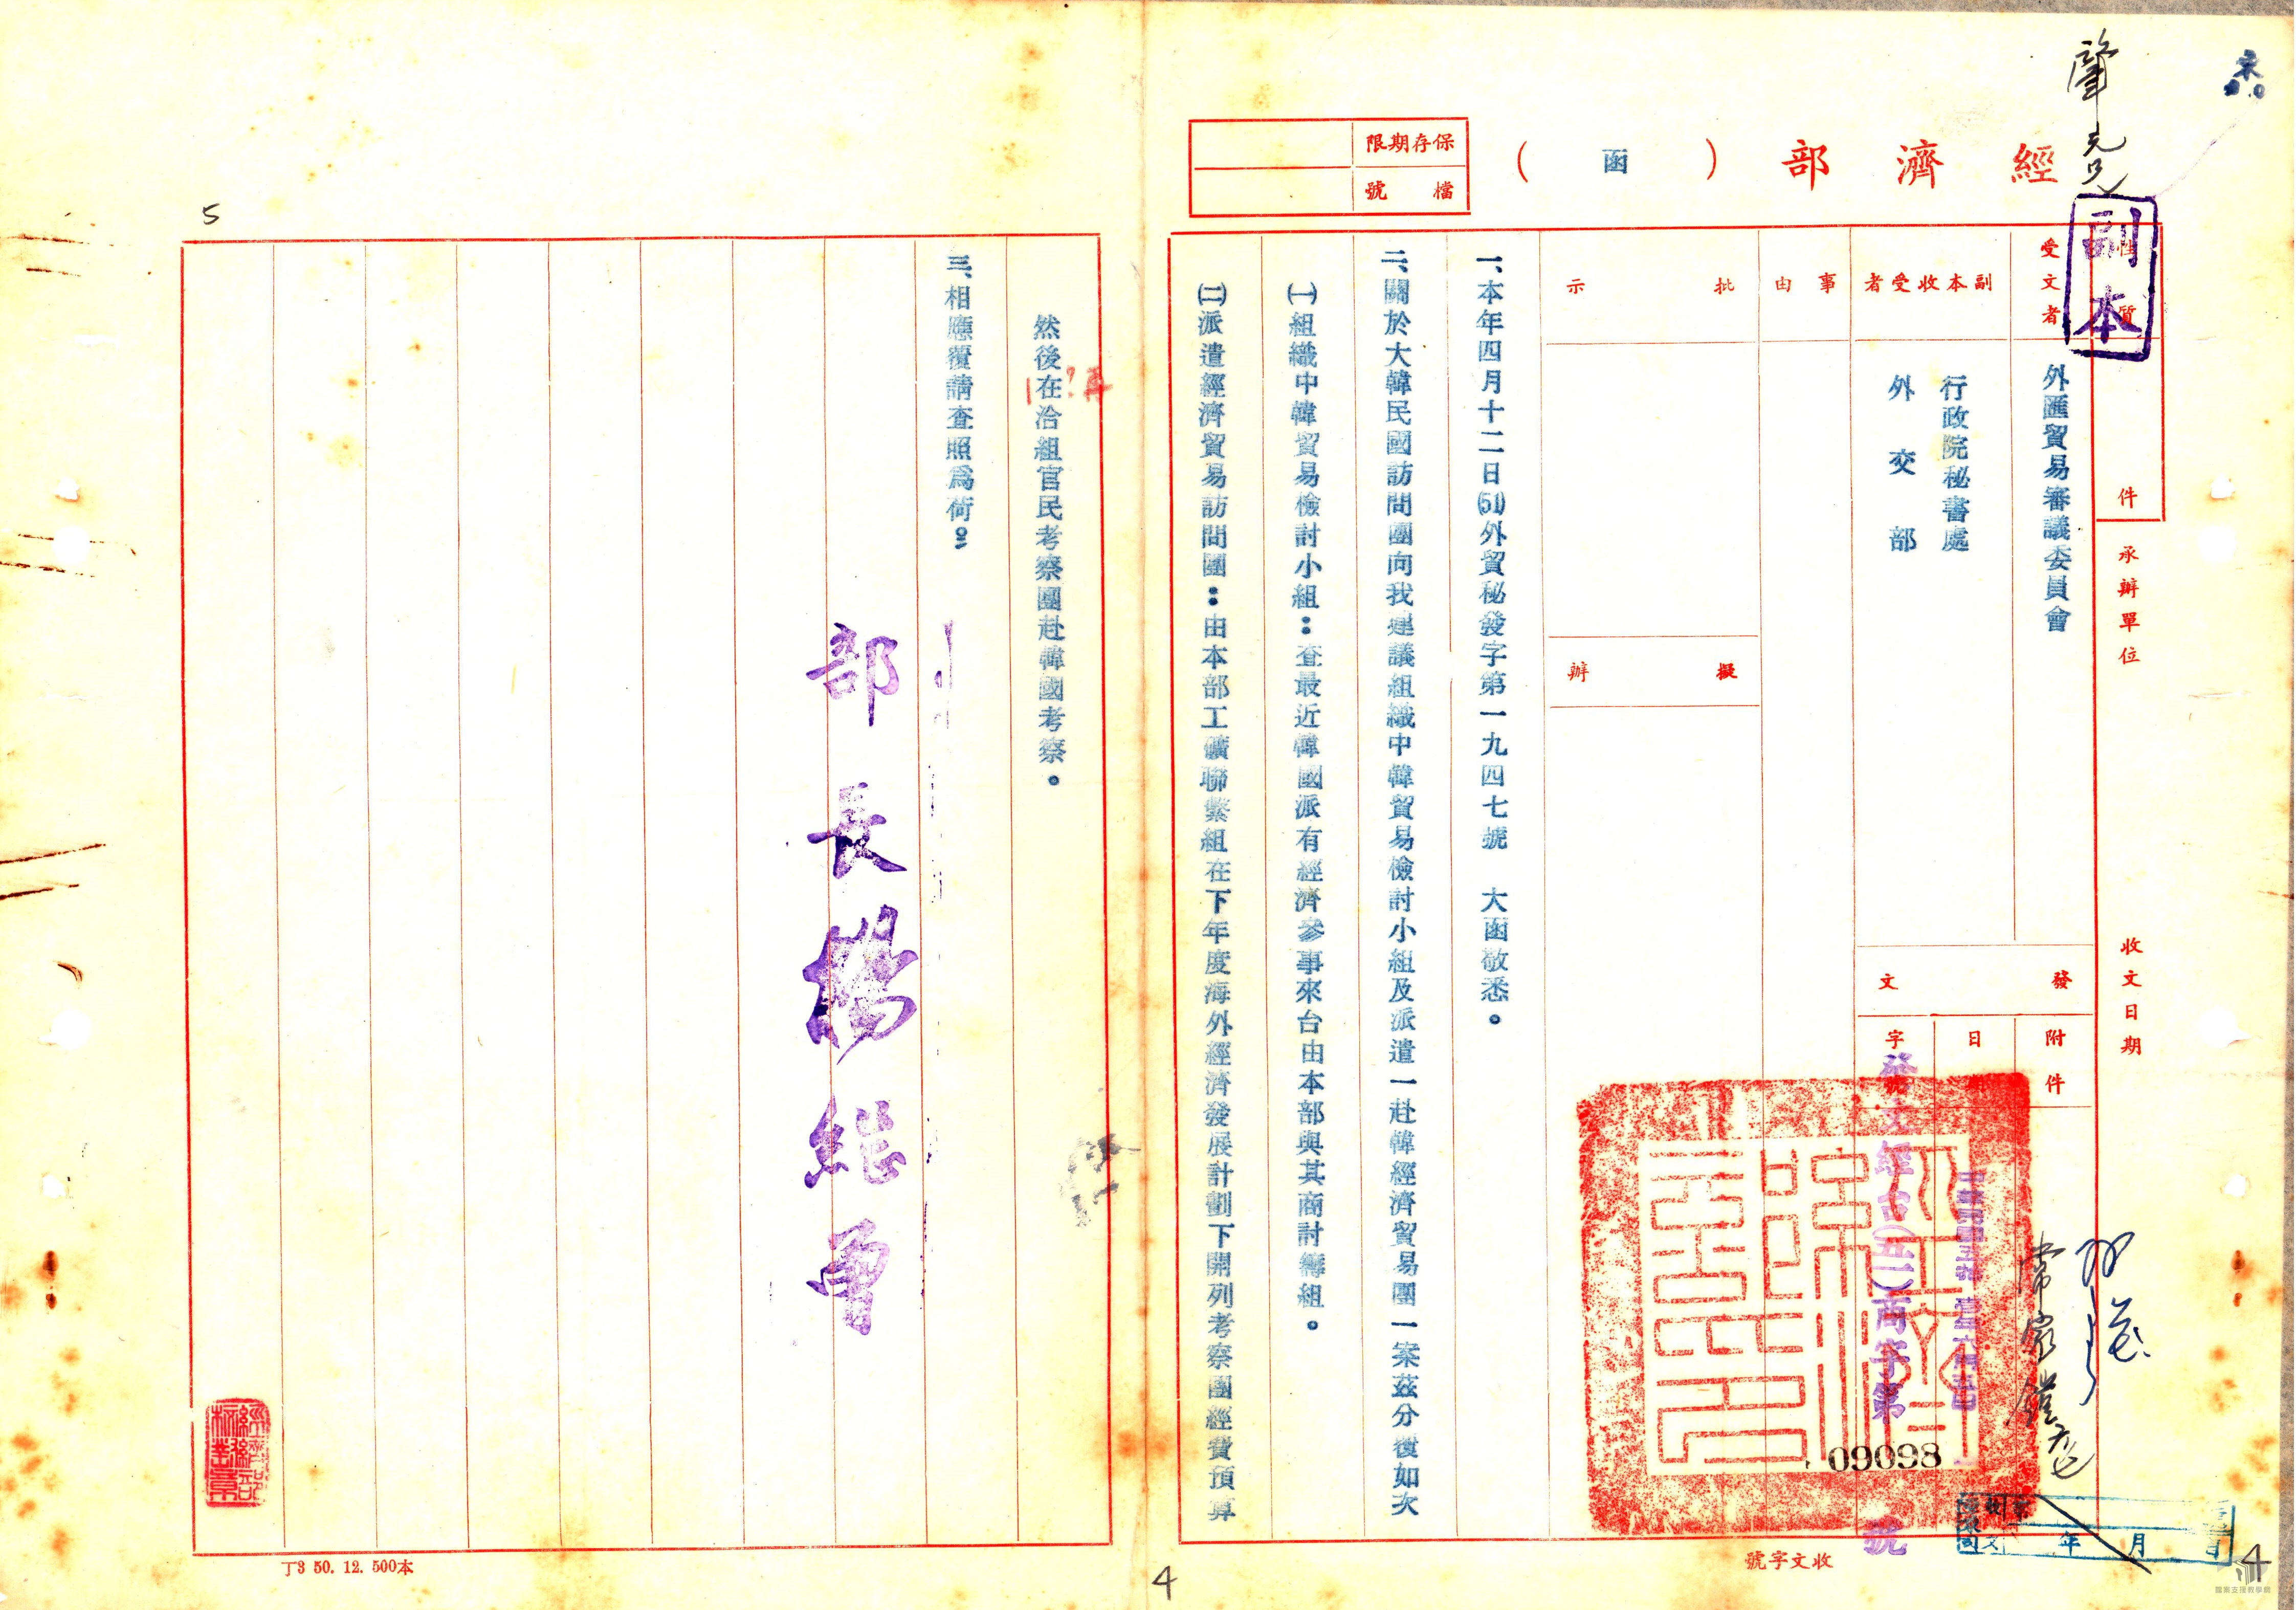 肇元兄
經濟部（函）
保存期限
檔號
副本
性質
件
承辦單位
收文日期
受文者
外匯貿易審議委員會
副本收受者
行政院秘書處
外交部
事由
批示
擬辦
發文
附件
日
字
發文經台(五一)商字第
09098
號
收文字號
年月日
一、本年四月十二日(51)外貿秘發字第一九四七號　大函敬悉。
二、關於大韓民國訪問團向我建議組織中韓貿易檢討小組及派遣一赴韓經濟貿易團一案茲分復如次
㈠組織中韓貿易檢討小組：查最近韓國派有經濟參事來台由本部與其商討籌組。
㈡派遣經濟貿易訪問團：由本部工礦聯繫組在下年度海外經濟發展計劃下開列考察團經費預算
4
4
然後在洽組官民考察團赴韓國考察。
再
三、相應覆請查照為荷。
部長楊繼曾
5
丁3 50. 12. 500本
檔案支援教學網